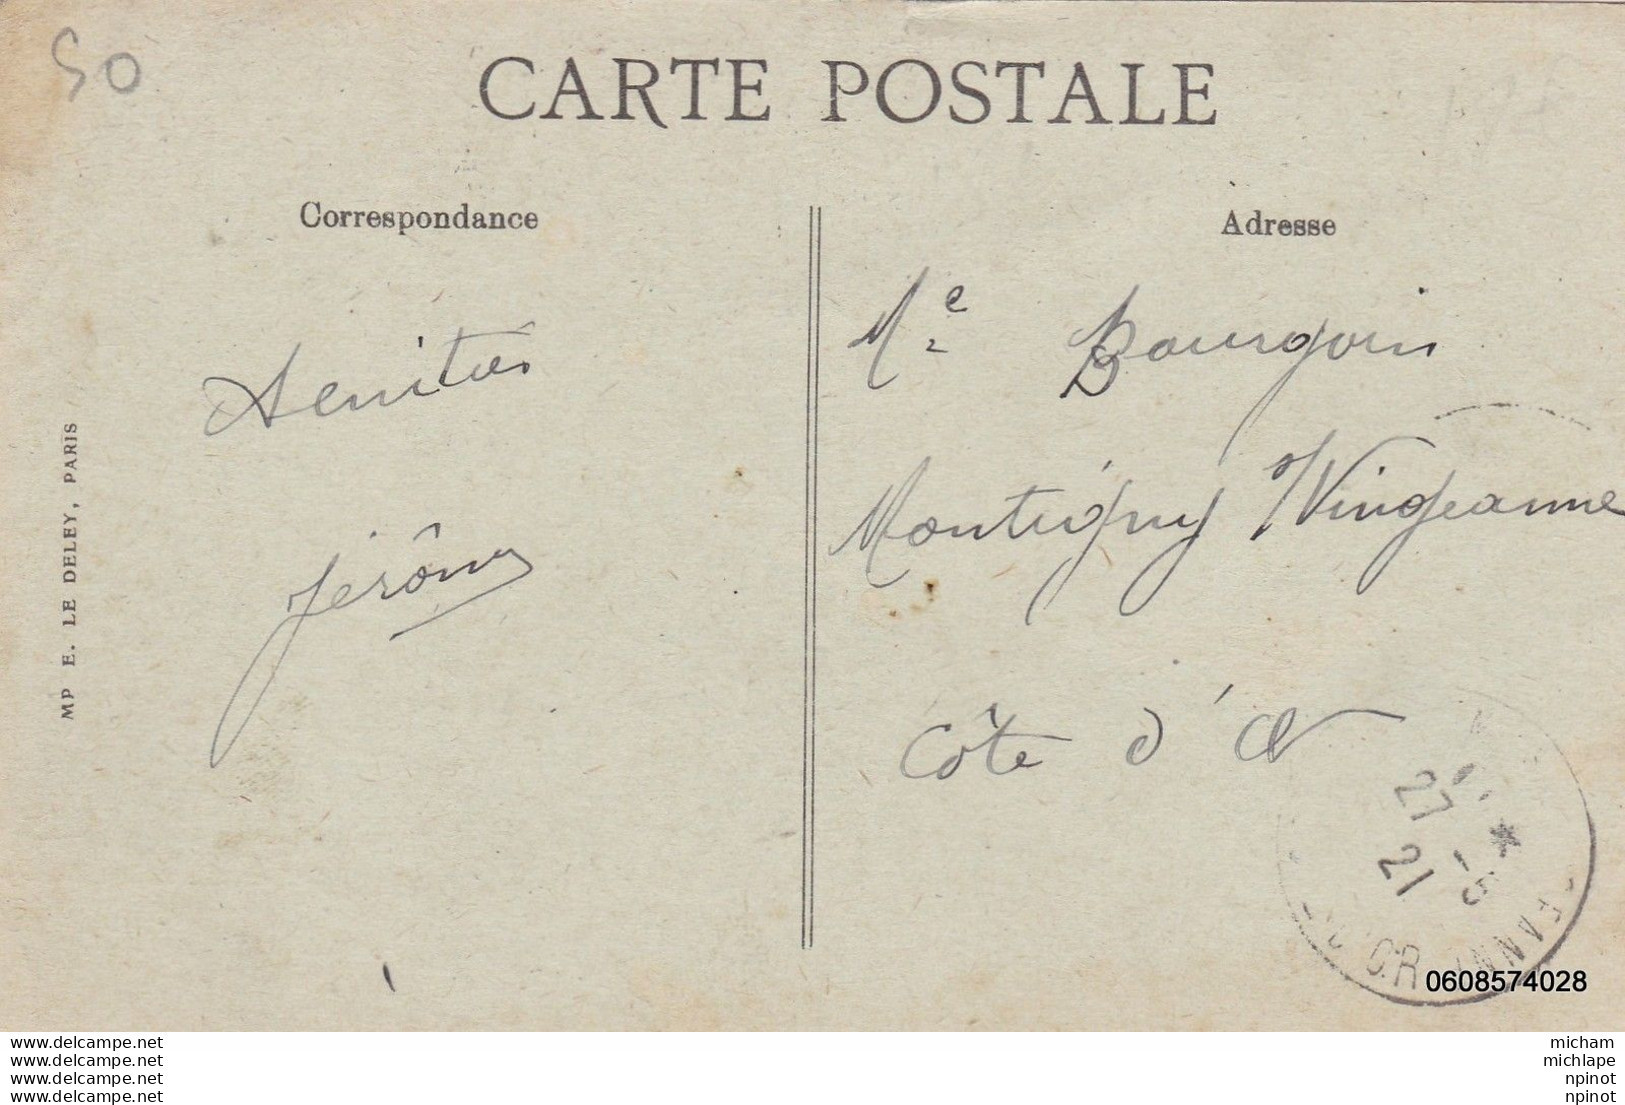 50
CARTE POSTALE
Correspondance
Adresse
Amitiés
Jérôme
MP E. LE DELEY, PARIS
Me Bourgoin
Montigny s/ Vingeanne
Côte d'Or
27 - 5
21
0608574028
www.delcampe.net
www.delcampe.net
www.delcampe.net
www.delcampe.net
micham
michlape
npinot
npinot